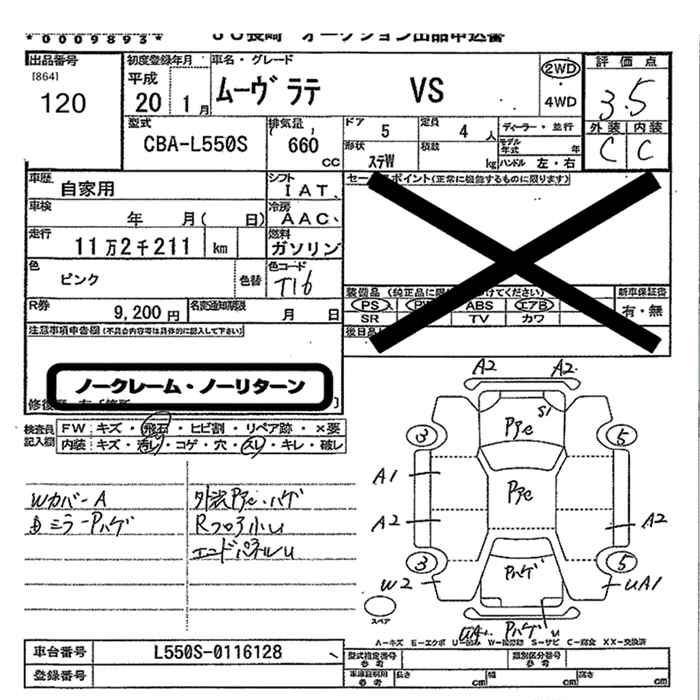 *0009893*
JU長崎 オークション出品申込書
出品番号
[864]
120
初度登録年月
平成
20 1月
車名・グレード
ムーヴ ラテ VS
2WD
・
4WD
評価点
3.5
外装 内装
C C
型式
CBA-L550S
排気量
660
cc
ドア 5
定員 4 人
ディーラー・並行
形状 ステW
積載 kg
モデル年式 年
ハンドル 左・右
車歴 自家用
シフト IAT
車検 年 月( 日)
冷房 AAC
走行 11万2千211 km
燃料 ガソリン
色 ピンク 色替
色コード T16
R券 9,200円
名変通知期限 月 日
セールスポイント(正常に機能するものに限ります)
装備品(純正品に限 けてください)
PS PW ABS エアB
SR TV カワ
新車保証書
有・無
後日品
注意事項申告欄(不具合内容等は具体的に記入して下さい)
ノークレーム・ノーリターン
修復歴
検査員記入欄
FW キズ・飛石・ヒビ割・リペア跡・×要
内装 キズ・汚れ・コゲ・穴・スレ・キレ・破レ
Wカバー A
ミラーPハゲ
外装Pアセ・ハゲ
Rフロア小U
エンドパネルU
A2 A2
S1
Pアセ
3 5
A1
Pアセ
A2 A2
3 5
W2
Pハゲ
UA1
Pハゲ U
スペア
A-キズ E-エクボ U-凹み W-波凹跡 S-サビ C-腐食 XX-交換済
車台番号 L550S-0116128
登録番号
型式指定番号 参考
類別区分番号 参考
車庫証明用 参考
長さ cm 幅 cm 高さ cm